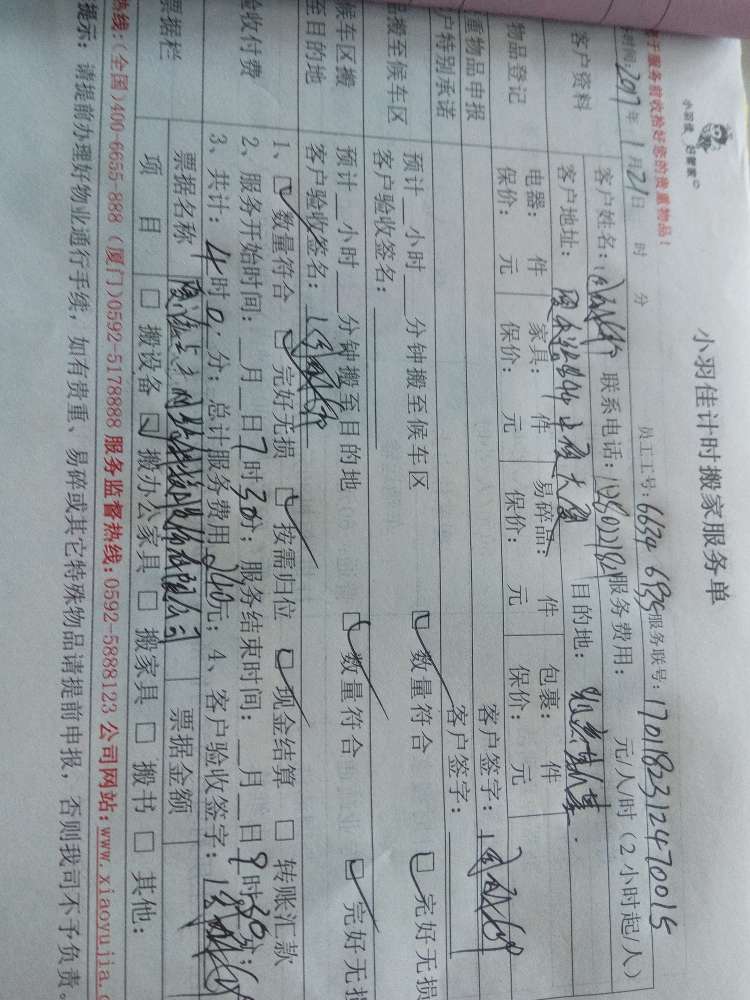 小羽佳计时搬家服务单
小羽佳 好管家
于服务前收拾好您的贵重物品!
员工工号: 6634 6835 服务联号: 1701182312470015
时间: 2017年1月21日 时 分
客户资料
客户姓名: 联系电话: 服务费用: 元/人/时(2小时起/人)
客户地址: 目的地:
物品登记
电器: 件 家具: 件 易碎品: 件 包裹: 件
保价: 元 保价: 元 保价: 元 保价: 元
重物品申报
户特别承诺
客户签字:
客户签字:
搬至候车区
预计__小时__分钟搬至候车区 数量符合 完好无损
客户验收签名:
候车区搬
至目的地
预计__小时__分钟搬至目的地 数量符合 完好无损
客户验收签名:
验收付费
1、 数量符合 完好无损 按需归位 现金结算 转账汇款
2、服务开始时间: __月__日7时30分; 服务结束时间: __月__日9时30分;
3、共计: 4时0分; 总计服务费用240元; 4、客户验收签字:
票据栏
票据名称 票据金额
项目 搬设备 搬办公家具 搬家具 搬书 其他:
热线:(全国)400-6655-888 (厦门)0592-5178888 服务监督热线:0592-5888123 公司网站:www.xiaoyujia.c
提示: 请提前办理好物业通行手续, 如有贵重、易碎或其它特殊物品请提前申报, 否则我司不予负责。